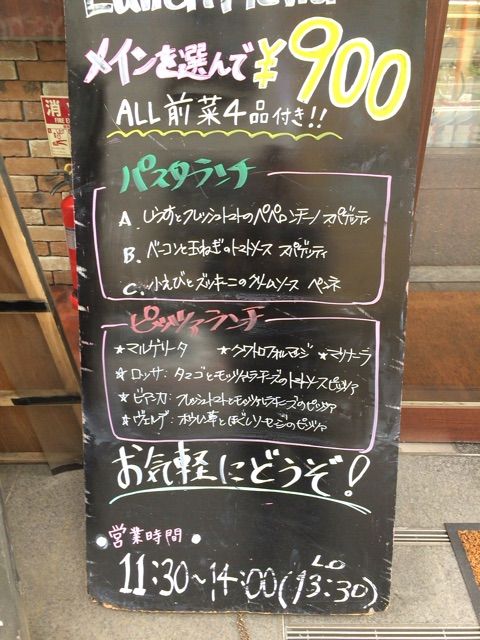 Lunch Menu
メインを選んで ¥900
ALL前菜4品付き!!
パスタランチ
A. しらすとフレッシュトマトのペペロンチーノ スパゲッティ
B. ベーコンと玉ねぎのトマトソース スパゲッティ
C. 小えびとズッキーニのクリームソース ペンネ
ピッツァランチ
★マルゲリータ ★クワトロフォルマッジ ★マリナーラ
★ロッサ: タマゴとモッツァレラチーズのトマトソースピッツァ
★ビアンカ: フレッシュトマトとモッツァレラチーズのピッツァ
★ヴェルデ: ホウレン草とほぐしソーセージのピッツァ
お気軽にどうぞ!
営業時間
11:30~14:00(LO 13:30)
消